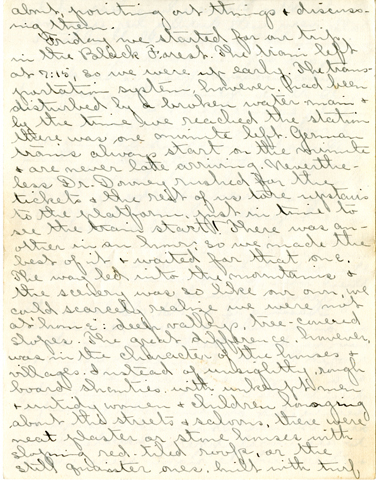 about, pointing out things & discuss-
ing them.
Friday we started for our trip
in the Black Forest. The train left
at 7:15, so we were up early. The trans-
portation system, however, had been
disturbed by a broken water main &
by the time we reached the station
there was one minute left. German
trains always start on the minute
& are never late arriving. Neverthe-
less Dr. Downey rushed for the
tickets & the rest of us tore upstairs
to the platform, just in time to
see the train start! There was an-
other in an hour, so we made the
best of it & waited for that one.
The way led into the mountains &
the scenery was so like our own, we
could scarcely realize we were not
at home: deep valleys, tree-covered
slopes. The great difference, however,
was in the character of the houses &
villages. Instead of unsightly, rough
board shanties with unkempt men
& untidy women & children hanging
about the streets & saloons, there were
neat plaster or stone houses with
sloping red-tiled roofs, or the
still quainter ones, built with turf